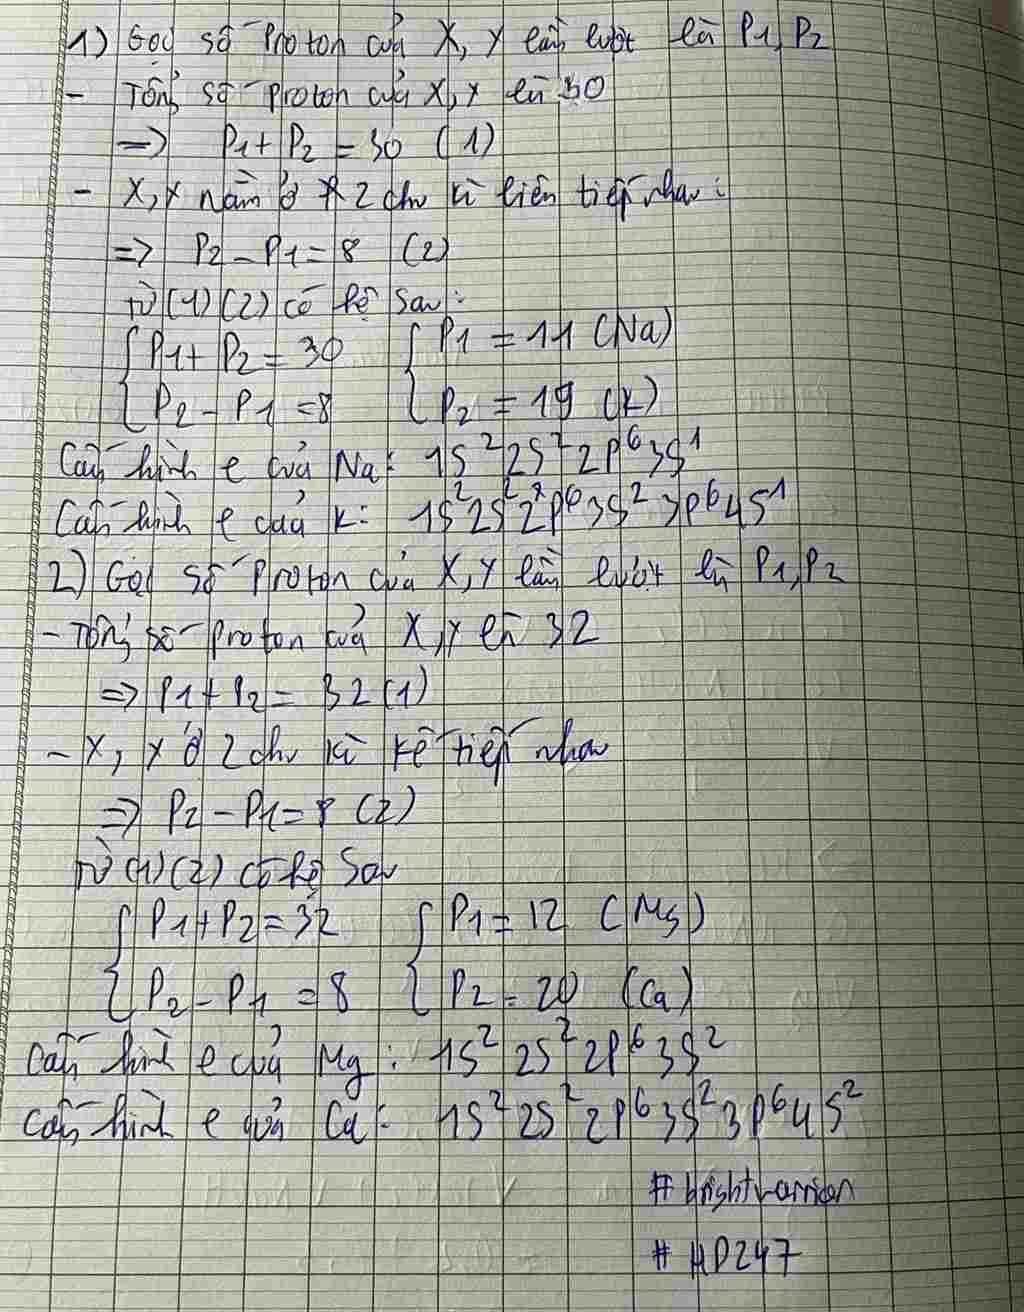 1) Gọi số Proton của X, Y lần lượt là P1, P2
- Tổng số proton của X, Y là 30
=> P1 + P2 = 30 (1)
- X, Y nằm ở 2 chu kì liên tiếp nhau:
=> P2 - P1 = 8 (2)
Từ (1) (2) có hệ sau:
{ P1 + P2 = 30 { P1 = 11 (Na)
{ P2 - P1 = 8 { P2 = 19 (K)
Cấu hình e của Na: 1s² 2s² 2p⁶ 3s¹
Cấu hình e của K: 1s² 2s² 2p⁶ 3s² 3p⁶ 4s¹
2) Gọi số Proton của X, Y lần lượt là P1, P2
- Tổng số proton của X, Y là 32
=> P1 + P2 = 32 (1)
- X, Y ở 2 chu kì kế tiếp nhau
=> P2 - P1 = 8 (2)
Từ (1) (2) có hệ sau
{ P1 + P2 = 32 { P1 = 12 (Mg)
{ P2 - P1 = 8 { P2 = 20 (Ca)
Cấu hình e của Mg: 1s² 2s² 2p⁶ 3s²
Cấu hình e của Ca: 1s² 2s² 2p⁶ 3s² 3p⁶ 4s²
#
# HD247